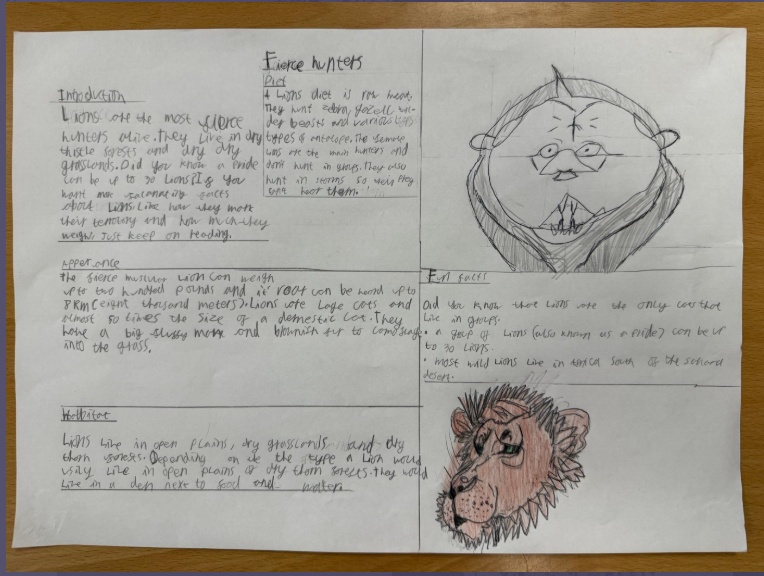 Fierce hunters
Introduction
Lions are the most fierce
hunters alive. They live in dry
thistle forests and dry dry
grasslands. Did you know a pride
can be up to 30 Lions? If you
want more facts
about Lions like how they mark
their territory and how much they
weigh. Just keep on reading.
Diet
A Lions diet is raw meat,
They hunt zebra,
beasts and various
types of antelope. The female
are the main hunters and
dont hunt in groups. They also
hunt in so they
hear them.
Apperance
The fierce muscular Lion can weigh
up to two hundred pounds and it' roar can be heard up to
8KM (eight thousand meters). Lions are Large cats and
almost 50 times the size of a domestic cat. They
have a big fluffy mane and blownish fur to
into the grass.
Habbitat
Lions Live in open plains, dry grasslands and dry
thorn forests. Depending on the type a Lion would
Live in open plains or dry thorn forests. They would
Live in a den next to food and
Fun facts
Did you know that Lions are the only cats that
Live in groups.
• a group of Lions (also known as a pride) can be up
to 30 Lions.
• most wild Lions Live in south of the
desert.